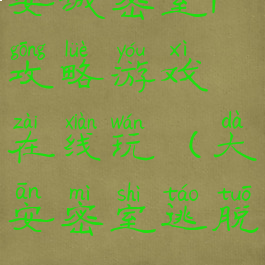 gōng lüè yóu xì
攻略游戏
zài xiàn wán dà
在线玩（大
ān mì shì táo tuō
安密室逃脱